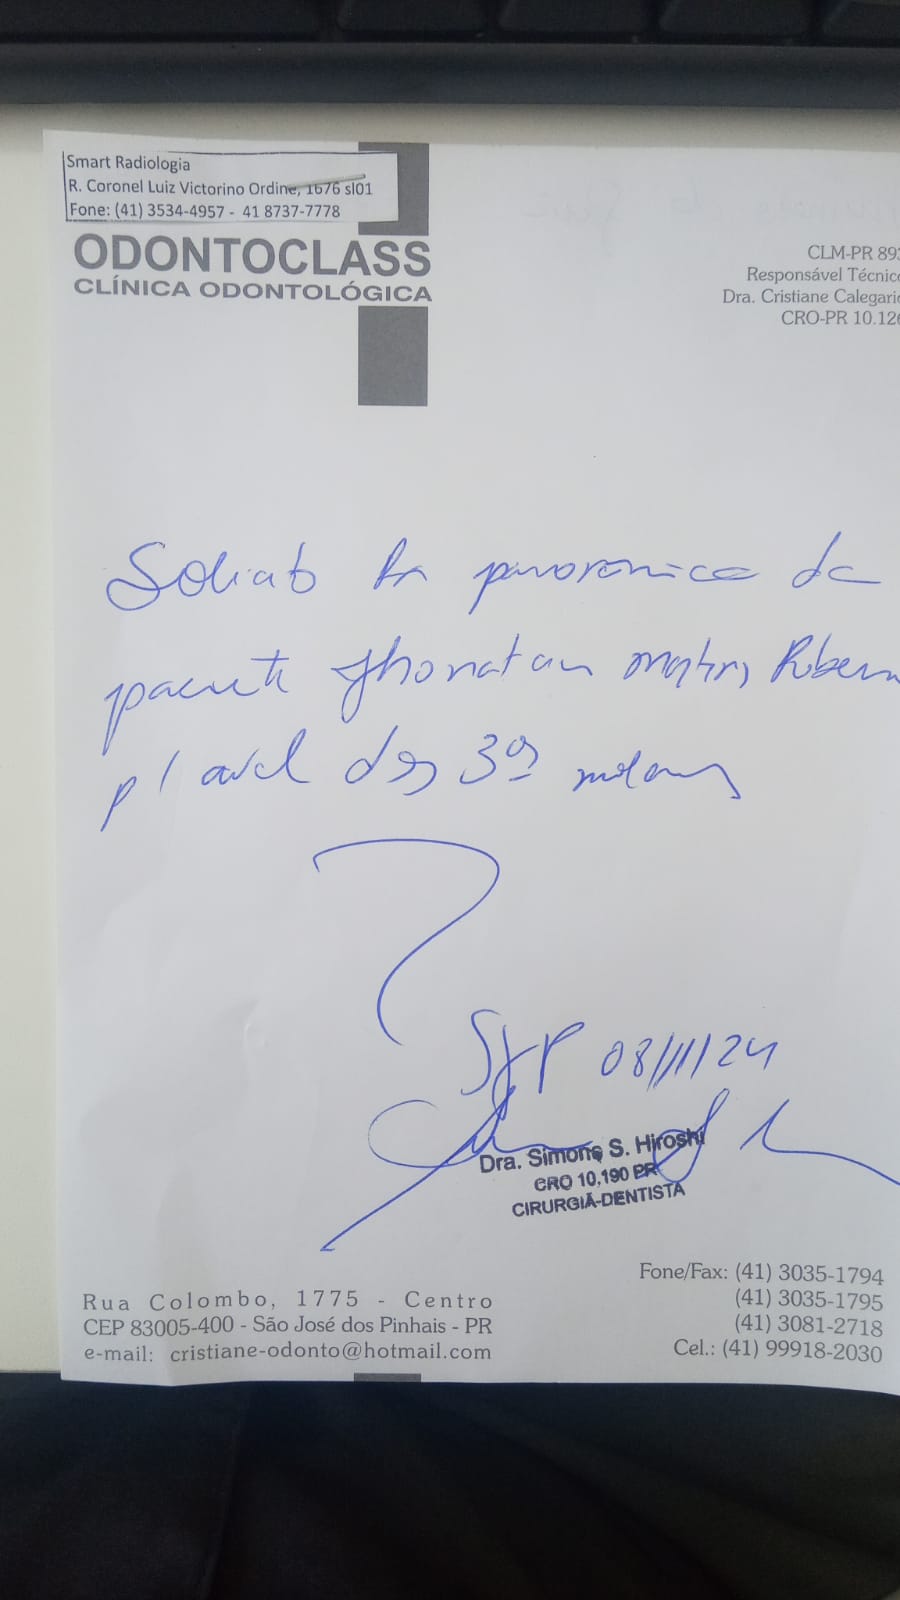 Smart Radiologia
R. Coronel Luiz Victorino Ordine, 1676 sl01
Fone: (41) 3534-4957 - 41 8737-7778
ODONTOCLASS
CLÍNICA ODONTOLÓGICA
CLM-PR 893
Responsável Técnic
Dra. Cristiane Calegari
CRO-PR 10.126
Solicito Rx panoramica da
paciente Jhonatan Martins Ribeir
p/ aval dos 3ºs molares
SJP 08/11/24
Dra. Simone S. Hiroshi
CRO 10,190 PR
CIRURGIÃ-DENTISTA
Rua Colombo, 1775 - Centro
CEP 83005-400 - São José dos Pinhais - PR
e-mail: cristiane-odonto@hotmail.com
Fone/Fax: (41) 3035-1794
(41) 3035-1795
(41) 3081-2718
Cel.: (41) 99918-2030